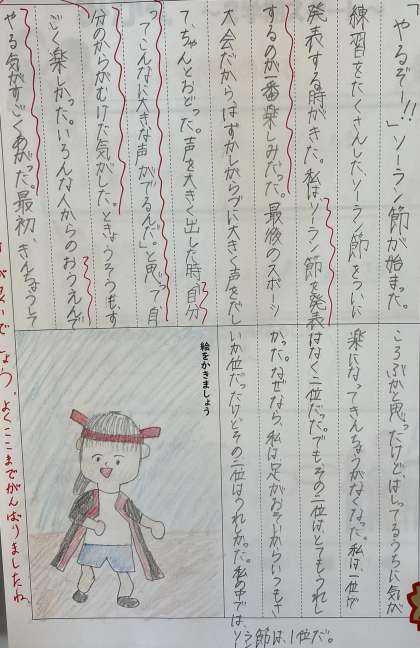 「やるぞー!!」ソーラン節が始まった。
練習をたくさんした、ソーラン節をついに
発表する時がきた。私はソーラン節を発表
するのが一番楽しみだった。最後のスポーツ
大会だから、はずかしがらづに大きく声をだし
て、ちゃんとおどった。声を大きく出した時、自分
って、こんなに大きな声がでるんだ。」と思って自
分のからがむけた気がした。ときょうそうもす
ごく楽しかった。いろんな人からのおうえんで
やる気がすごくあがった。最初、きんちょうして
ころぶかと思ったけどはしってるうちに気が
楽になってきんちょうがなくなった。私は一位が
はなく二位だった。でも、その二位はとてもうれし
かった。なぜなら、私は足がおそいからいつもさ
いか位だったけど、その二位はうれしかった。私の中では
ソーラン節は、1位だ。
絵をかきましょう
よくここまでがんばりましたね。